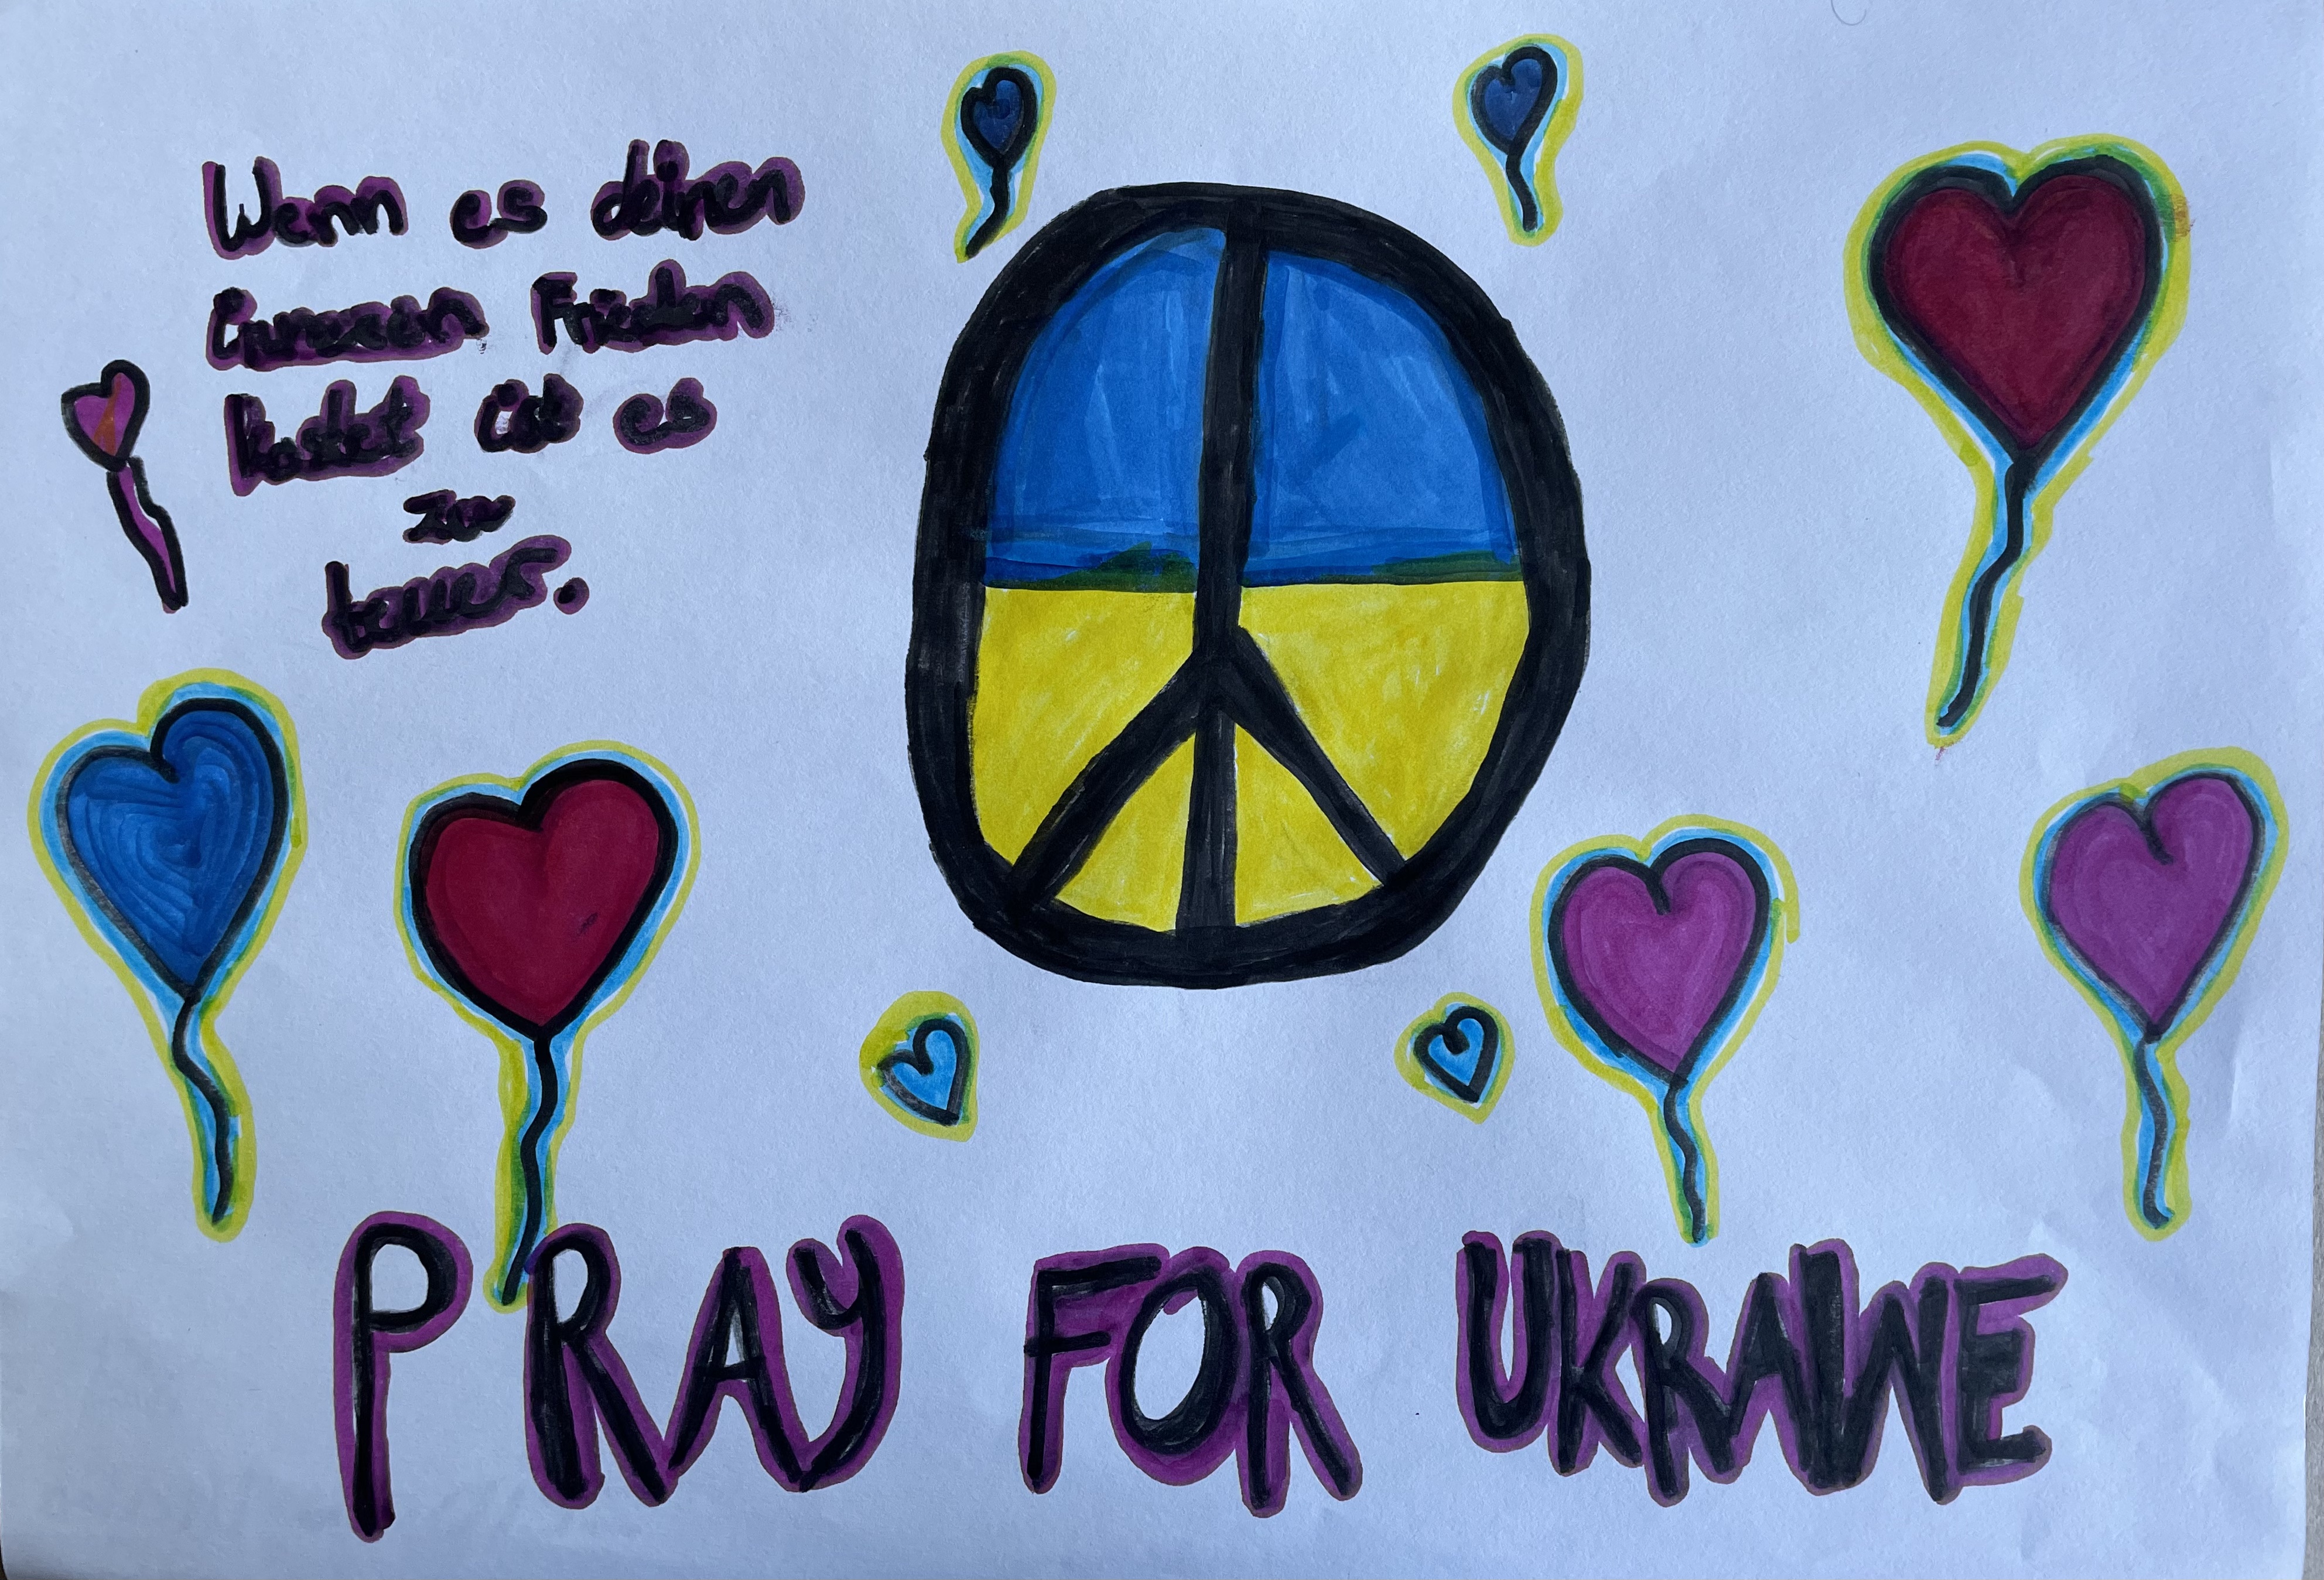 Wenn es deinen
inneren Frieden
kostet ist es
zu
teuer.
PRAY FOR UKRAINE